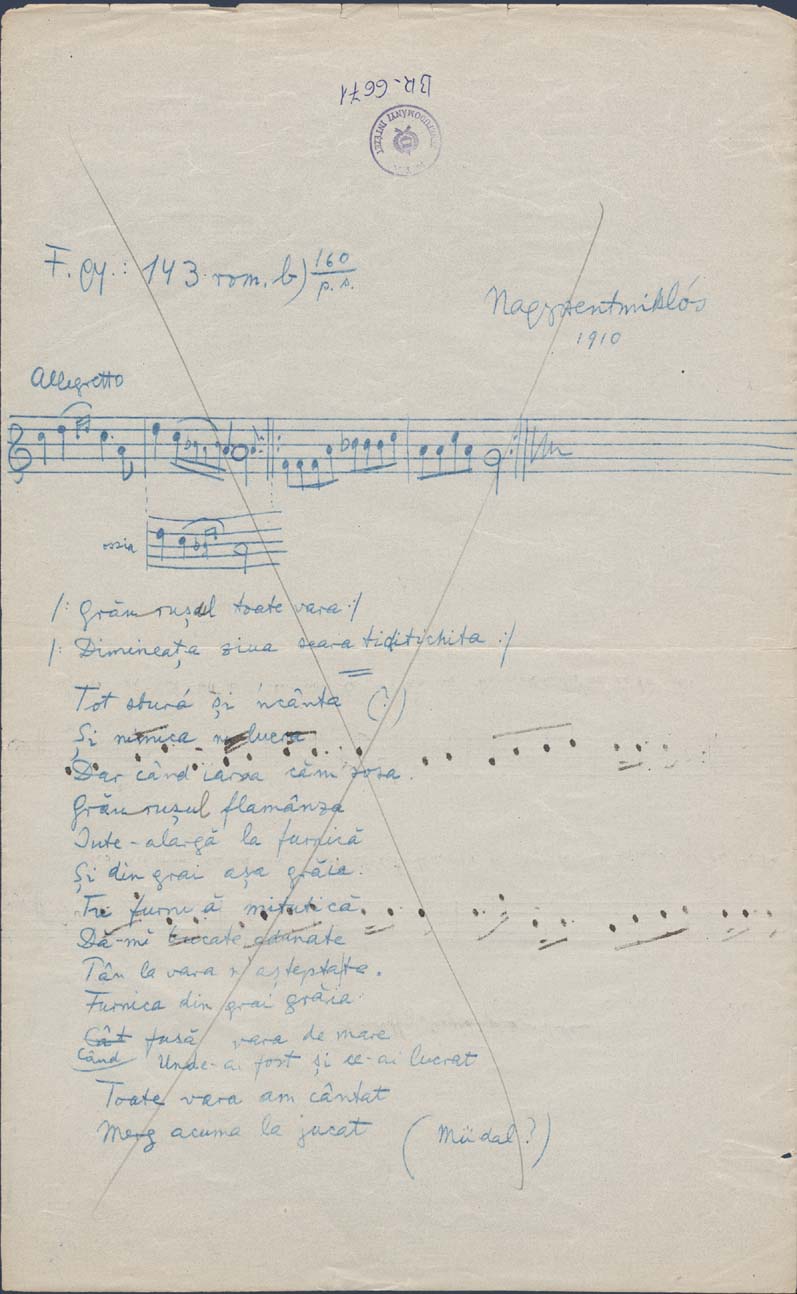 BR-6671
F. Gy.: 143. rom. b) 160
p. s.
Nagyszentmiklós
1910
Allegretto
ossia
/: Grăurușul toate vara :/
/: Dimineața ziua seara titititichita :/
Tot sbură și 'ncânta (?)
Și nimica nu lucra
Dar când iarna
Grăurușul flamânza
Iute-alargă la furnică
Și din grai așa grăia:
mitutică
Dă-mi bucate adunate
la vara n'așteptate.
Furnica din grai grăia:
Cât fusă vara de mare
Când
Unde-ai fost și ce-ai lucrat
Toate vara am cântat
Merg acuma la jucat (Műdal?)